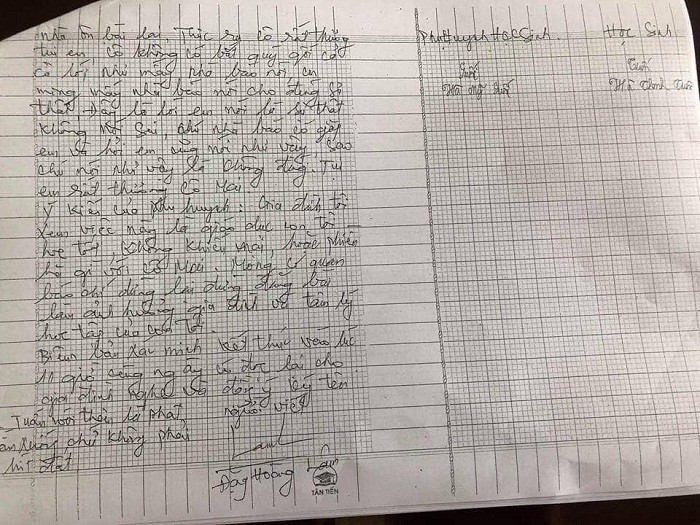 nhà ôn bài lại. Thực ra cô rất thương
tụi em cô không có bắt quỳ gối
có lỗi như mấy nhà báo nói, em
mong mấy nhà báo nói cho đúng sự
thật, đây là lời em nói là sự thật
không nói sai, chứ nhà báo có gặp
em và hỏi em cũng nói như vậy, sao
chú nói như vậy là không đúng. Tụi
em rất thương cô Mai
Ý kiến của phụ huynh: Gia đình tôi
xem việc này là giáo dục con tôi
học tốt, không khiếu nại, hoặc phiền
hà gì với cô Mai. Mong cơ quan
báo chí dừng lại đừng đăng bài
làm ảnh hưởng gia đình và tâm lý
học tập của con tôi.
Biên bản xác minh kết thúc vào lúc
11 giờ cùng ngày có đọc lại cho
gia đình nghe và đồng ý ký tên
Tuấn với thêm là phạt
xuống chứ không phải
người viết
Đặng Hoàng Lâm
TÂN TIẾN
Phụ Huynh Học Sinh.
Học Sinh